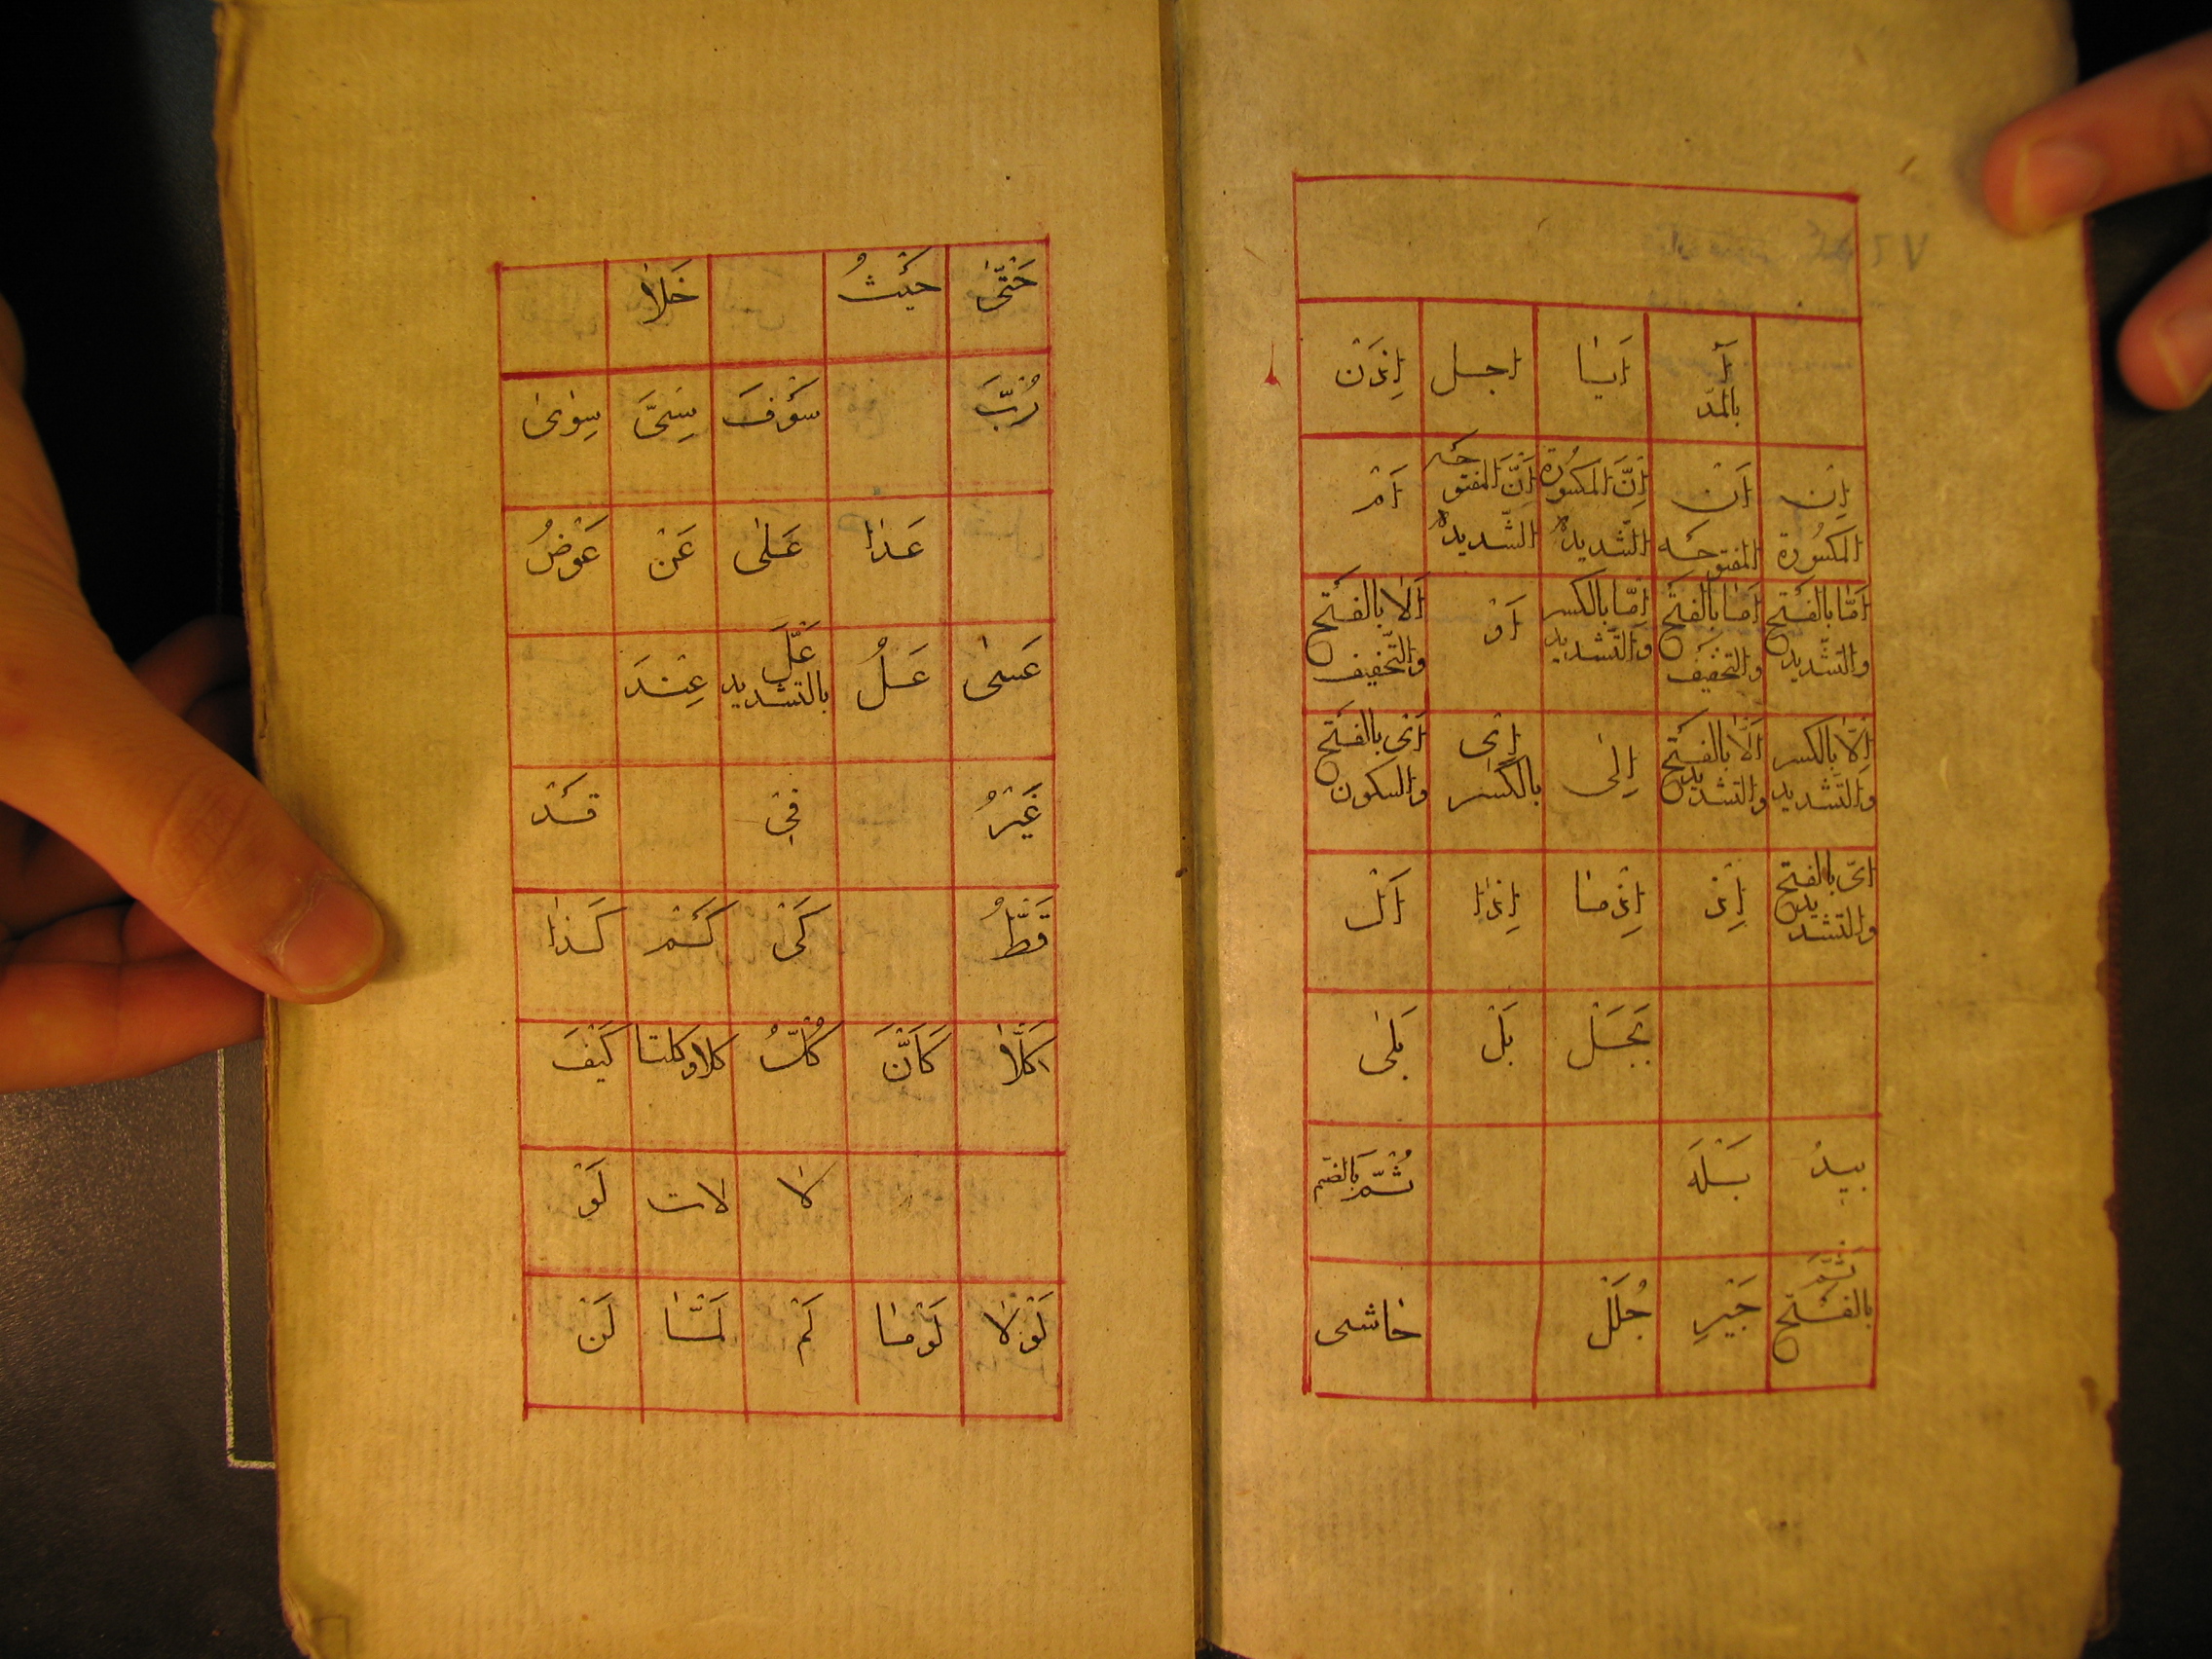 آ بالمدّ اَيَا اجل اِذَنْ
اِنْ المكسُورة اَنْ المفتوحه اِنَّ المكسُورة الشّديدة اَنَّ المفتوحه الشّديدة اَمْ
اَمّا بالفَتح والتّشديد اَمَا بالفَتح والتّخفيف اِمّا بالكسر والتّشديد اَوْ اَلَا بالفَتح والتّخفيف
اِلّا بالكسر والتّشديد اَلّا بالفَتح والتشديد اِلىٰ اِىْ بالكَسْر اَىْ بالفَتح والسكون
اىّ بالفتح والتشديد اِذْ اِذْمَا اِذَا اَلْ
بَجَلْ بَلْ بَلىٰ
بيدُ بَلْهَ ثُمّ بالضم
ثَمَّ بالفَتح جَيْرِ جُلَلْ حاشى
حَتّىٰ حَيْثُ خَلَا
رُبَّ سَوْفَ سِىَّ سِوىٰ
عَدَا عَلىٰ عَنْ عَوْضُ
عَسىٰ عَلُ عَلَّ بالتشديد عِنْدَ
غَيْرُ فِىْ قَدْ
قَطُّ كَىْ كَمْ كَذَا
كَلَّا كَاَنَّ كُلُّ كلا وكلتا كَيْفَ
لا لات لَوْ
لَوْلَا لَوْمَا لَمْ لَمَّا لَنْ